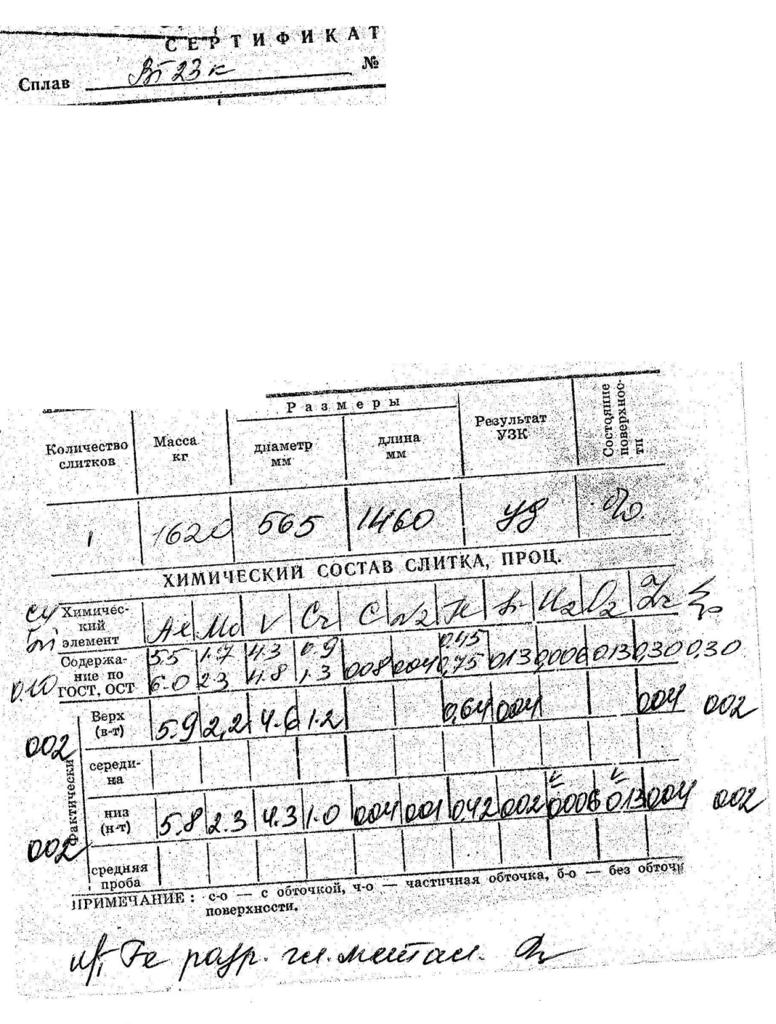 СЕРТИФИКАТ
Сплав ВТ 23 к №
Количество слитков Масса кг Размеры диаметр мм длина мм Результат УЗК Состояние поверхности
1 1620 565 1460 уд
ХИМИЧЕСКИЙ СОСТАВ СЛИТКА, ПРОЦ.
Химический элемент Al Mo V Cr C N2 Fe Si H2 O2 Zr Σпр
Содержание по ГОСТ, ОСТ 5.5 1.7 4.3 0.9 0,45
0.10 6.0 2.3 4.8 1.3 008 004 0,75 0.13 0,006 0.13 0,30 0.30
Фактически
002 Верх (в-т) 5.9 2,2 4.6 1.2 0,64 004 004 002
середина
002 низ (н-т) 5.8 2.3 4.3 1.0 004 001 0.42 002 0006 0.13 004 002
средняя проба
ПРИМЕЧАНИЕ: с-о — с обточкой, ч-о — частичная обточка, б-о — без обточк
поверхности.
Fe разр. гл. метал.